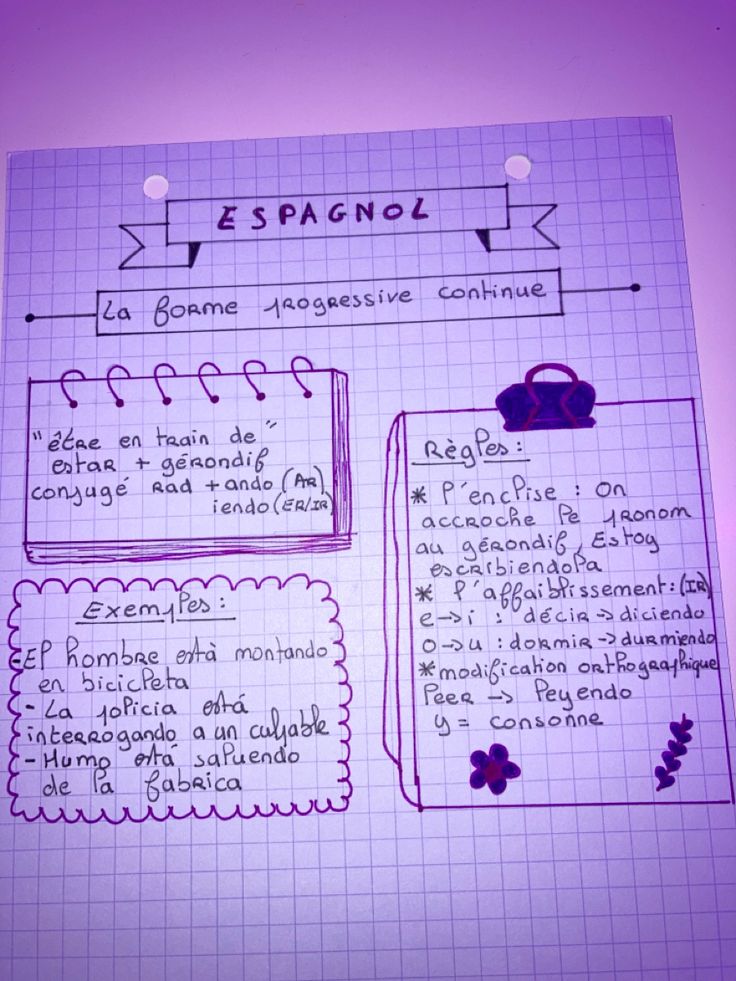 ESPAGNOL
La forme progressive continue
"être en train de"
estar + gérondif
conjugé Rad + ando (AR)
iendo (ER/IR)
Exemples :
- El hombre està montando
en bicicleta
- La policia está
interrogando a un culpable
- Humo está saluendo
de la fabrica
Règles :
* l'enclise : On
accroche le pronom
au gérondif, Estoy
escribiendola
* l'affaiblissement : (IR)
e → i : décir → diciendo
o → u : dormir → durmiendo
* modification orthographique
leer → leyendo
y = consonne